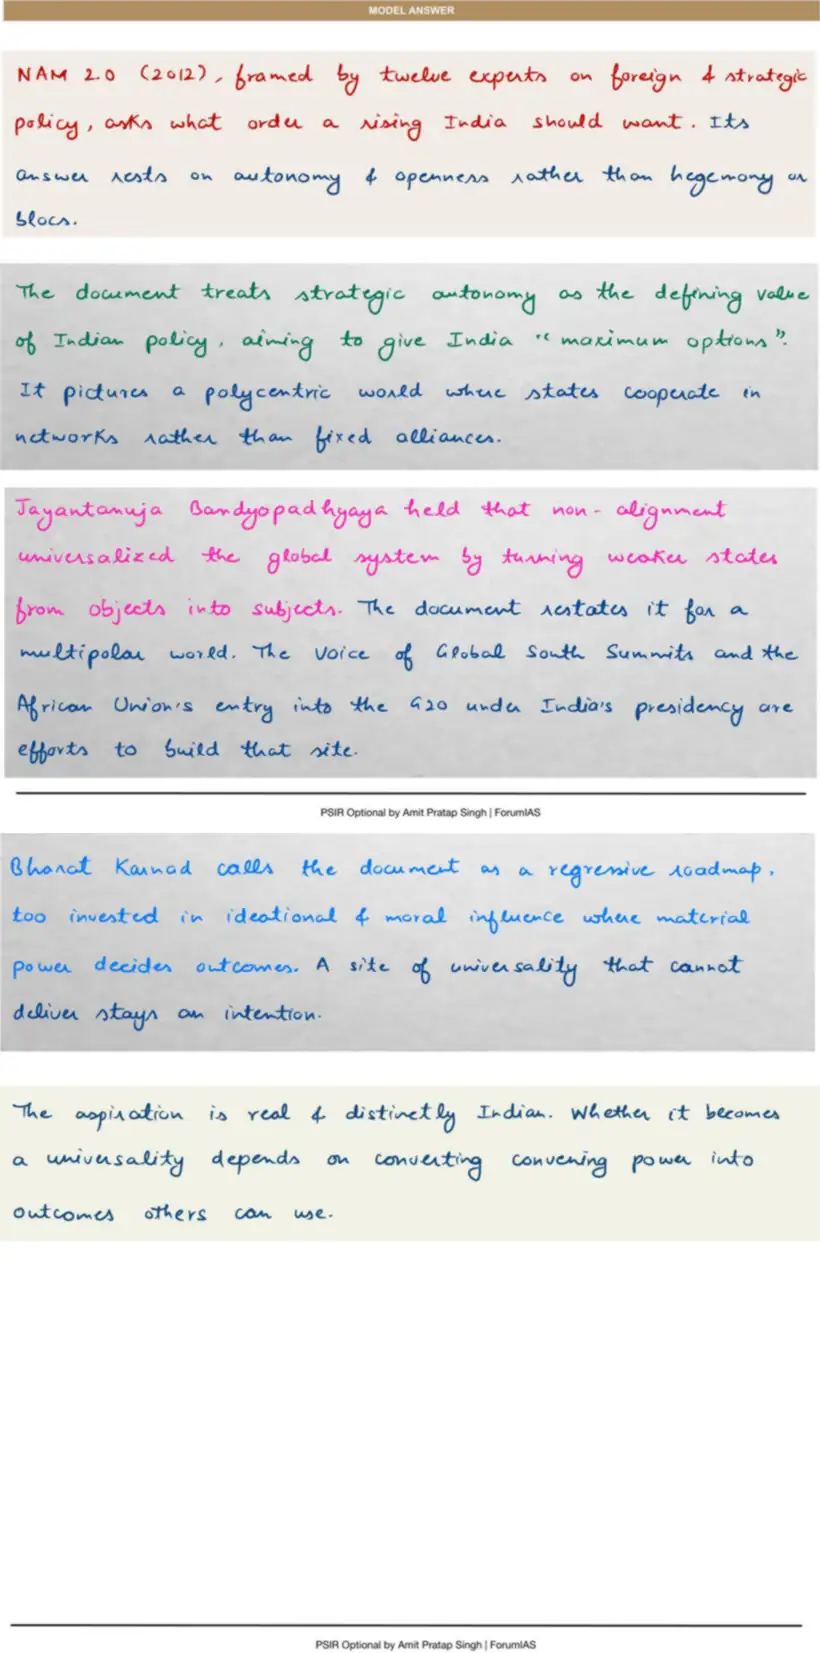 MODEL ANSWER
NAM 2.0 (2012), framed by twelve experts on foreign & strategic
policy, asks what order a rising India should want. Its
answer rests on autonomy & openness rather than hegemony or
blocs.
The document treats strategic autonomy as the defining value
of Indian policy, aiming to give India "maximum options".
It pictures a polycentric world where states cooperate in
networks rather than fixed alliances.
Jayantanuja Bandyopadhyaya held that non-alignment
universalized the global system by turning weaker states
from objects into subjects. The document restates it for a
multipolar world. The Voice of Global South Summits and the
African Union's entry into the G20 under India's presidency are
efforts to build that site.
PSIR Optional by Amit Pratap Singh | ForumIAS
Bharat Karnad calls the document as a regressive roadmap,
too invested in ideational & moral influence where material
power decides outcomes. A site of universality that cannot
deliver stays an intention.
The aspiration is real & distinctly Indian. Whether it becomes
a universality depends on converting convening power into
outcomes others can use.
PSIR Optional by Amit Pratap Singh | ForumIAS